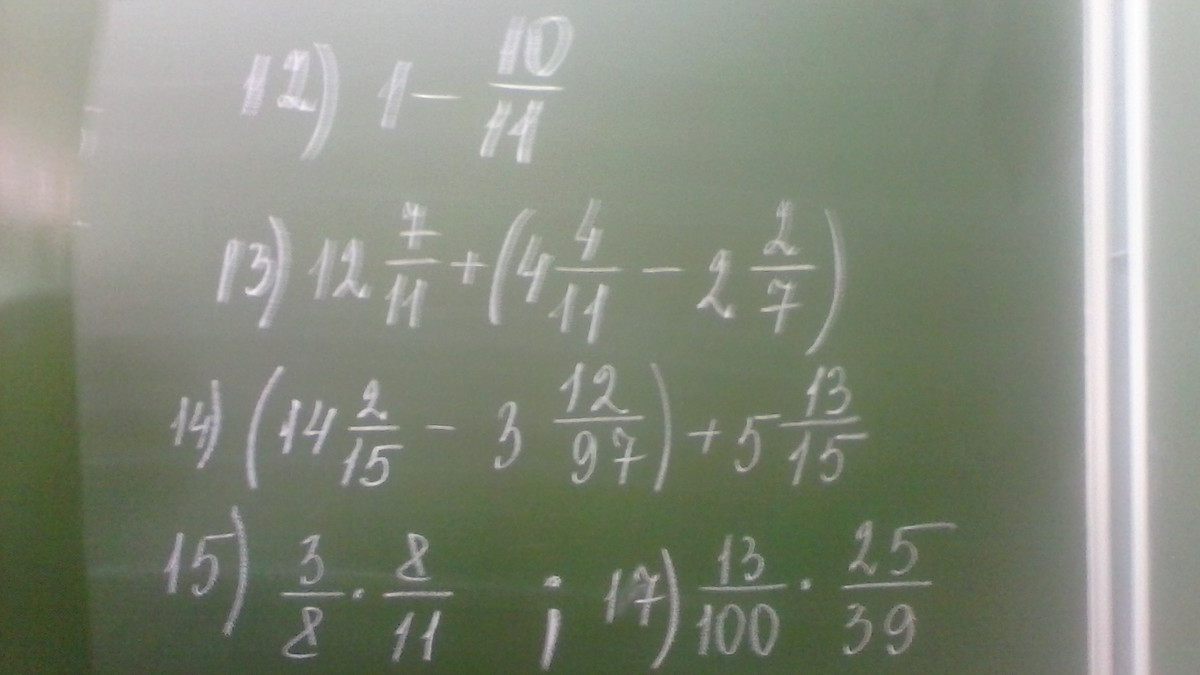 12) 1 - 10/11
13) 12 7/11 + (4 4/11 - 2 2/7)
14) (14 2/15 - 3 12/97) + 5 13/15
15) 3/8 · 8/11 ; 17) 13/100 · 25/39